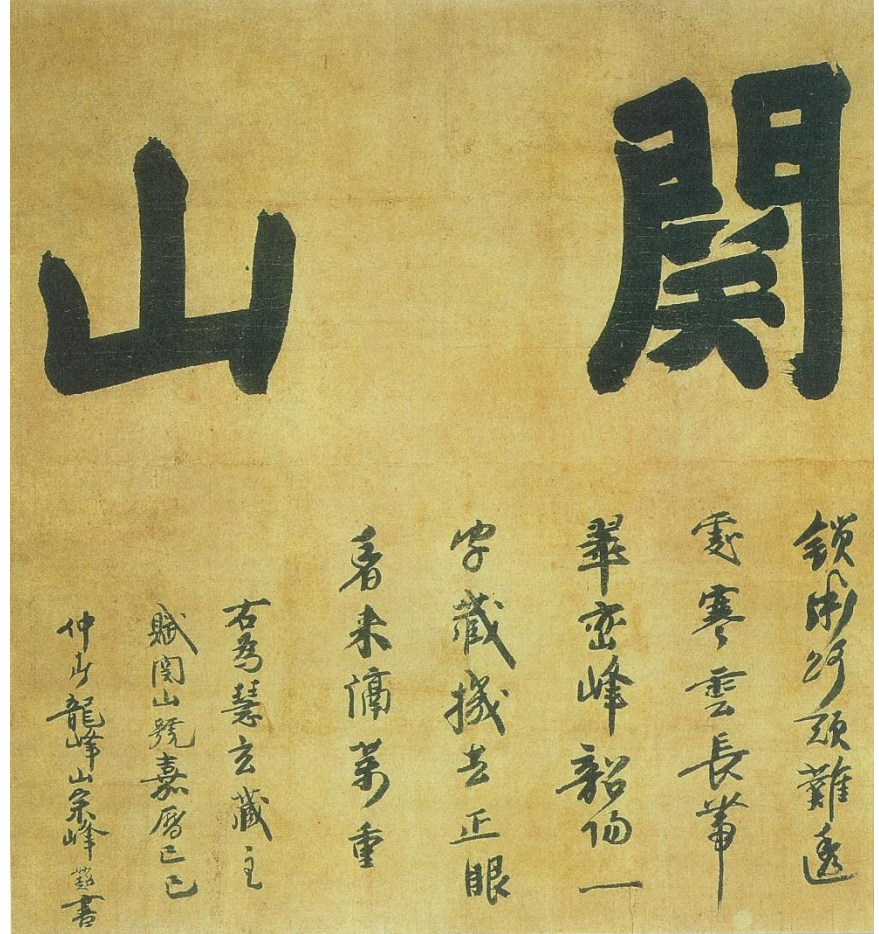 関山
鎖断路頭難透
處寒雲長帯
翠巒峰韶陽一
字藏機去正眼
看来隔萬重
右為慧玄藏主
賦関山號嘉暦己巳
仲春龍峰山宗峰妙超書